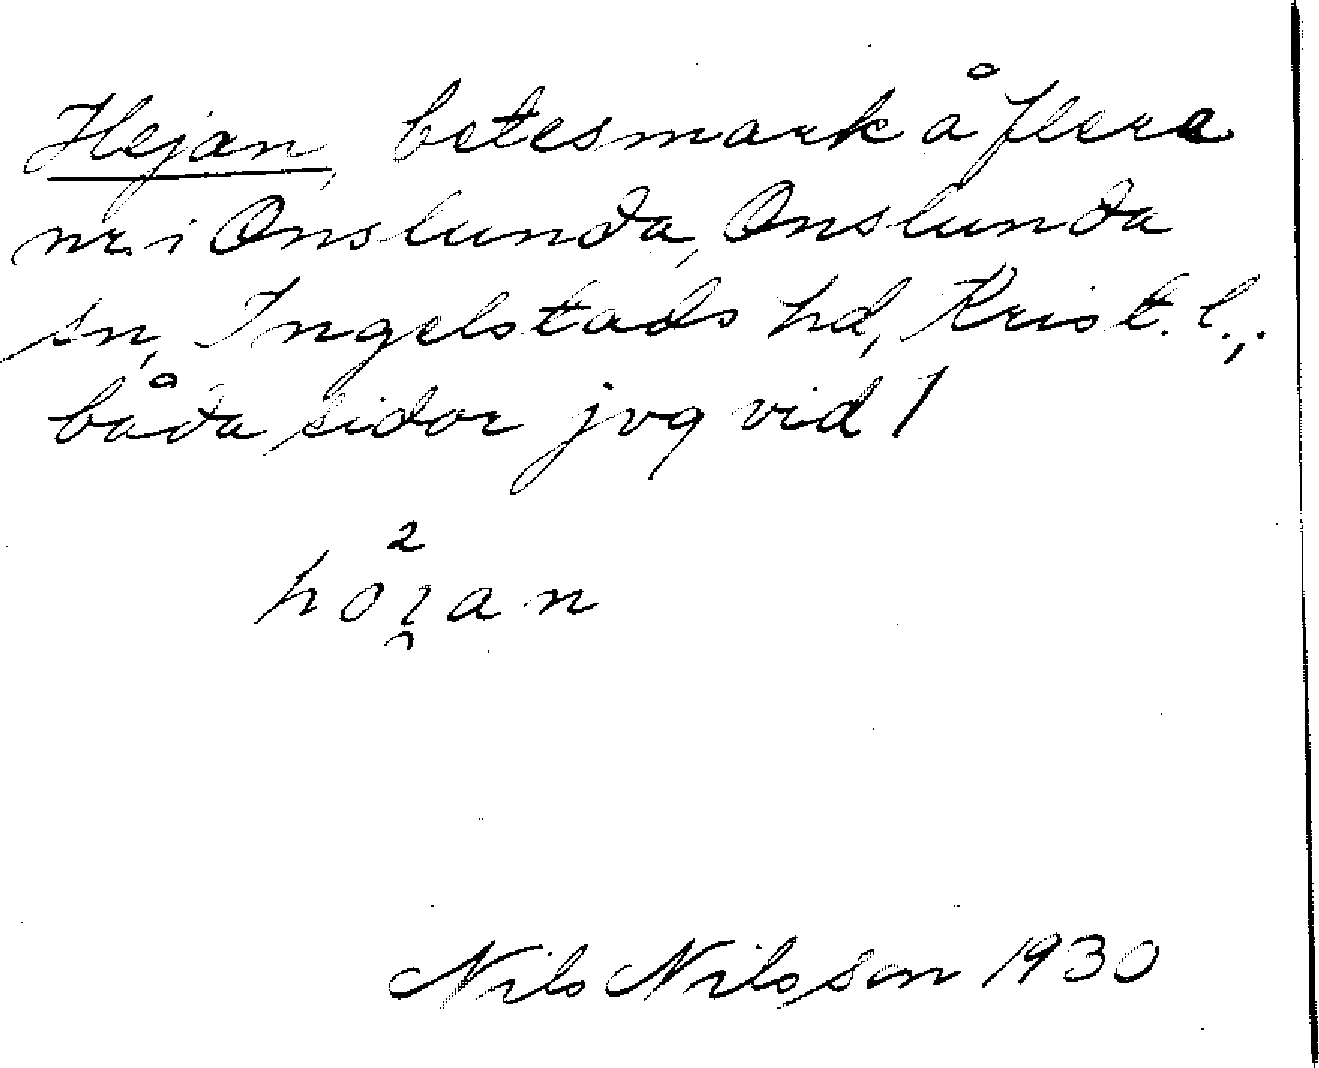 Hejan, betesmark å flera
nr. i Onslunda, Onslunda
sn, Ingelstads hd, Krist. l.,
båda sidor jvg vid 1
Nils Nilsson 1930